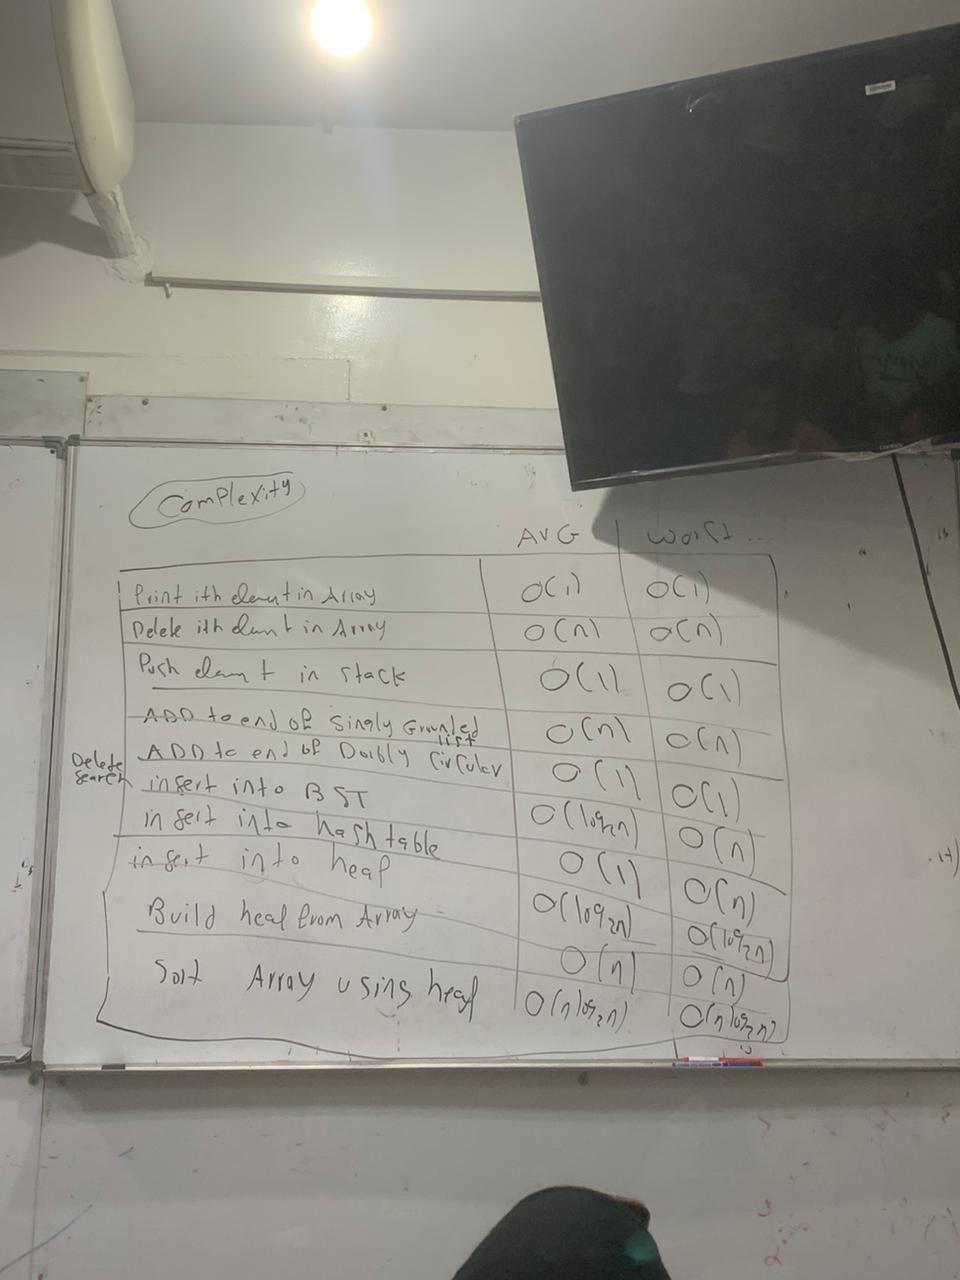 Complexity
AVG Worst...
Print ith element in Array O(1) O(1)
Delete ith element in Array O(n) O(n)
Push element in stack O(1) O(1)
ADD to end of Singly Grounded list O(n) O(n)
ADD to end of Doubly Circular O(1) O(1)
Delete
Search
insert into BST O(log₂n) O(n)
insert into hash table O(1) O(n)
insert into heap O(log₂n) O(log₂n)
Build heap from Array O(n) O(n)
Sort Array using heap O(n log₂n) O(n log₂n)